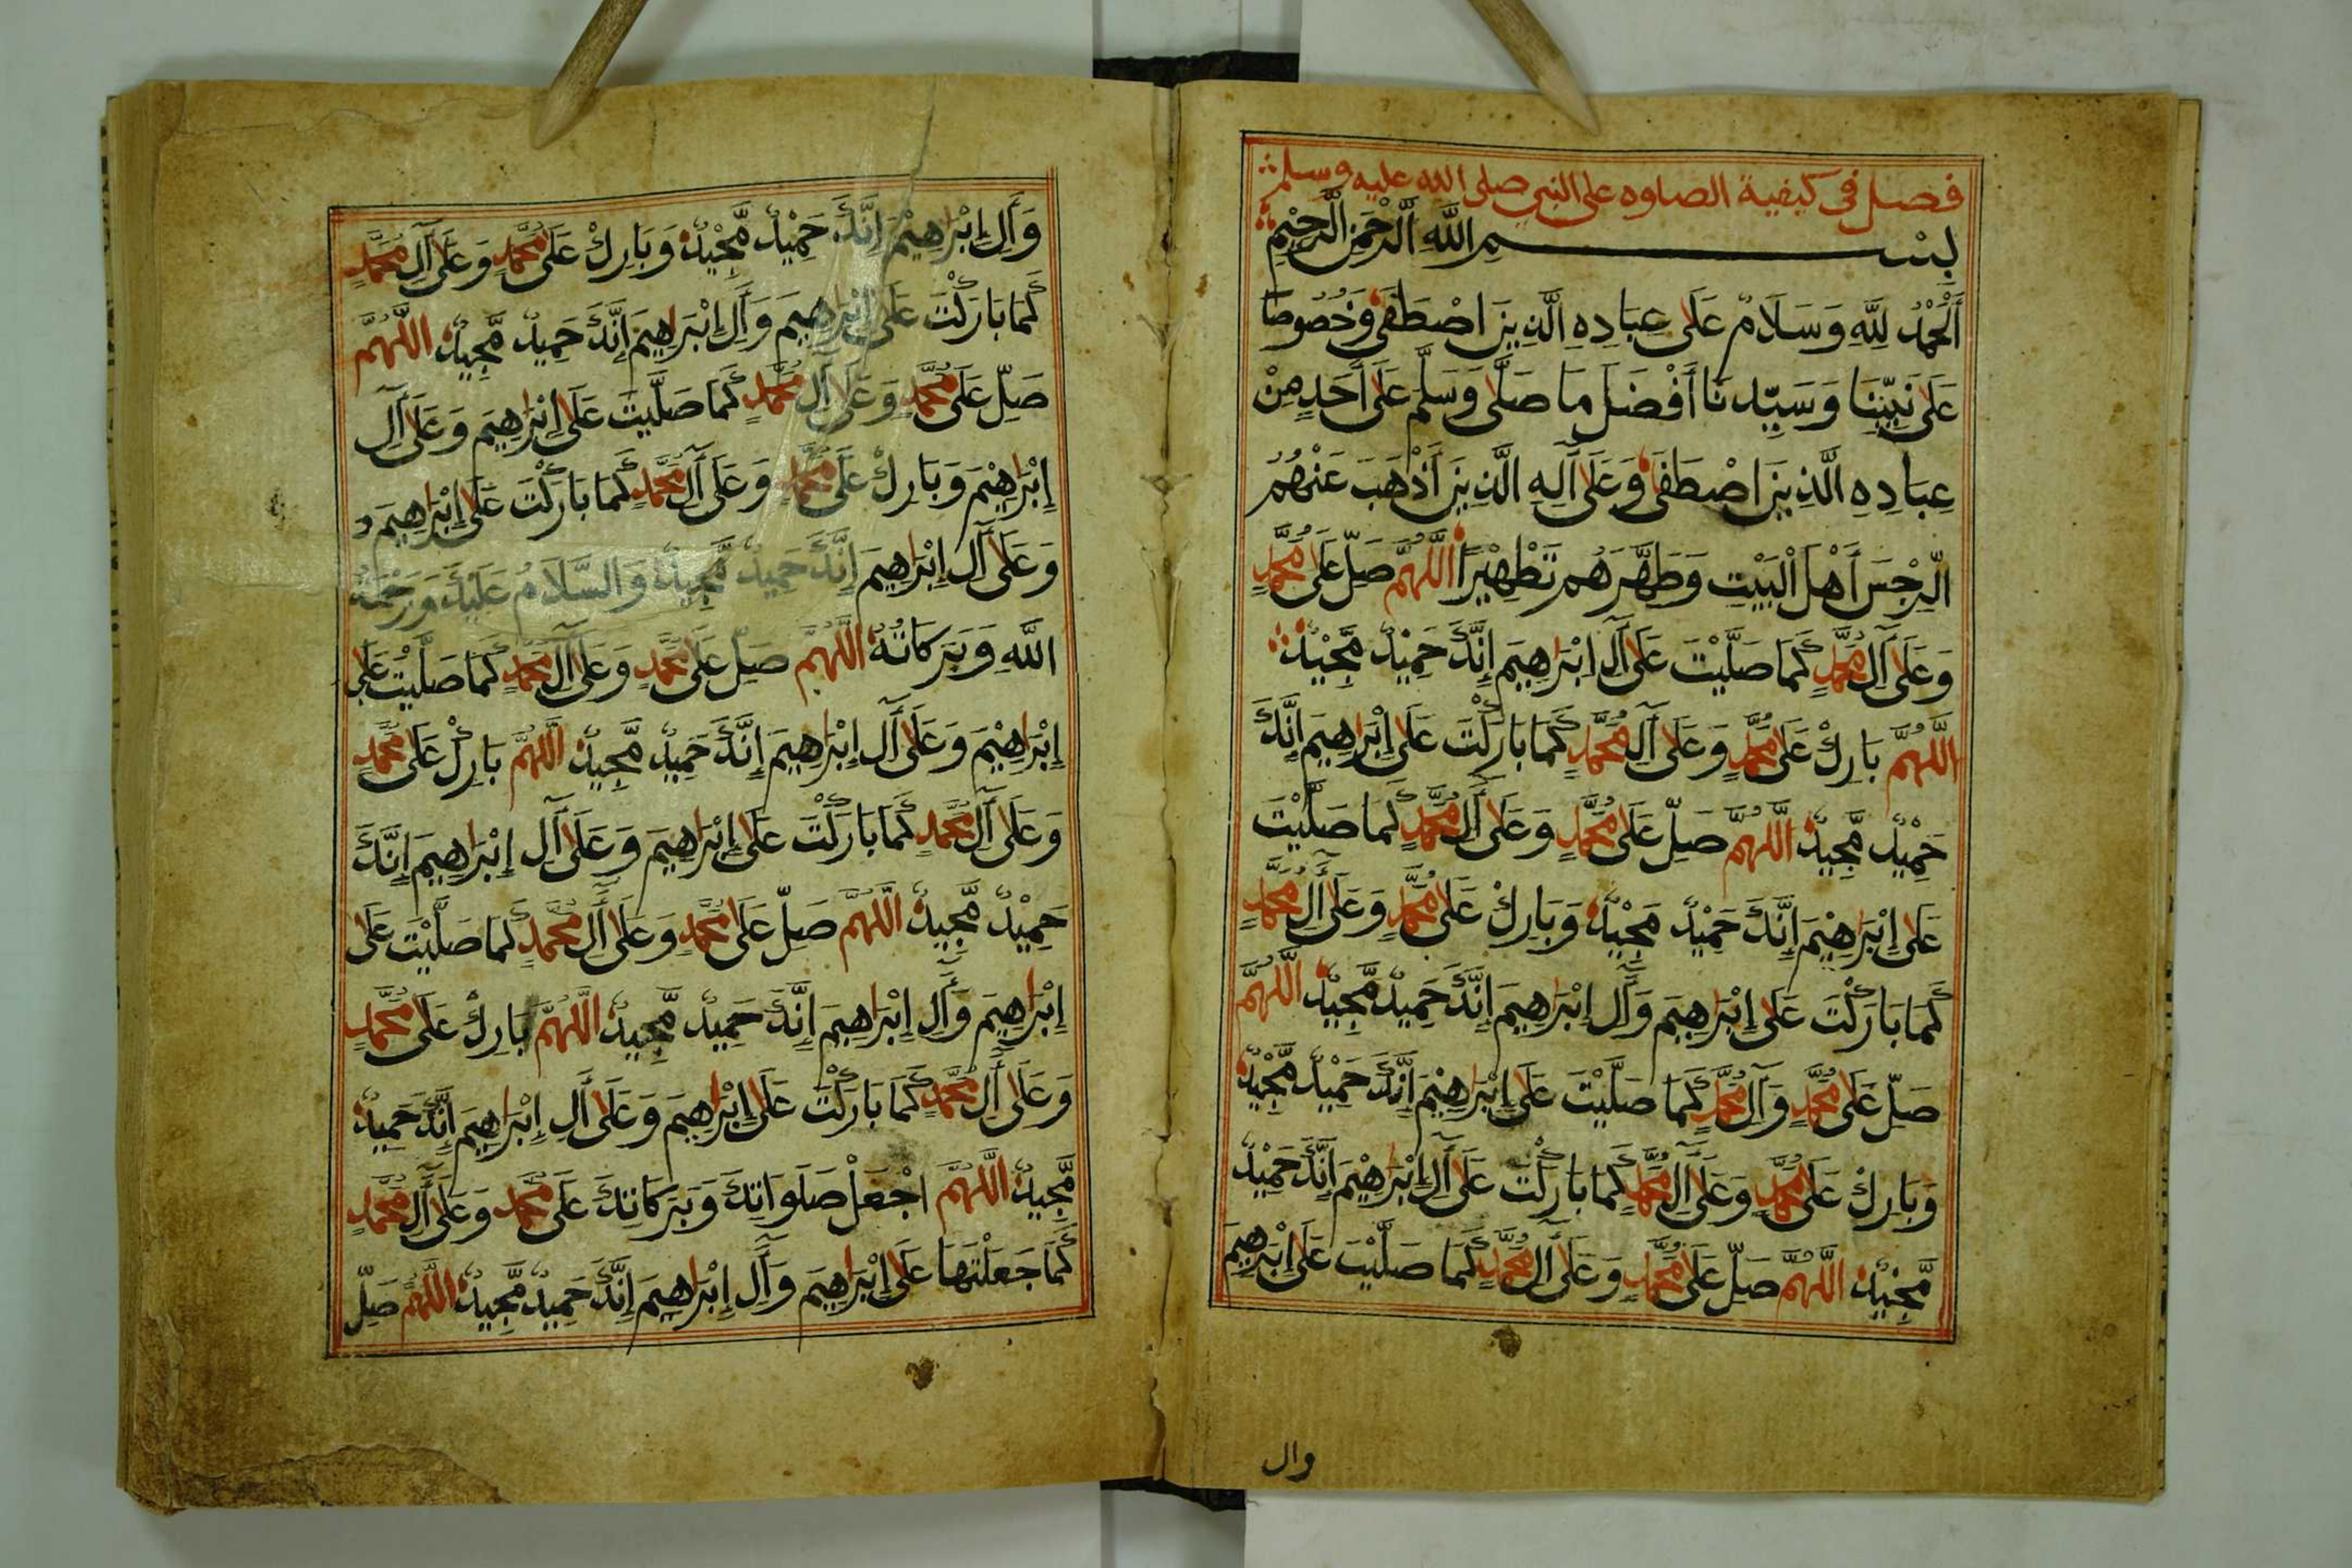 فصل في كيفية الصلوه على النبي صلى الله عليه وسلم
بِسْمِ اللَّهِ الرَّحْمَنِ الرَّحِيْمِ
اَلْحَمْدُ لِلَّهِ وَسَلَامٌ عَلَى عِبَادِهِ الَّذِيْنَ اصْطَفَى وَخُصُوصًا
عَلَى نَبِيِّنَا وَسَيِّدِنَا أَفْضَلَ مَا صَلَّى وَسَلَّمَ عَلَى أَحَدٍ مِنْ
عِبَادِهِ الَّذِيْنَ اصْطَفَى وَعَلَى آلِهِ الَّذِيْنَ أَذْهَبَ عَنْهُمُ
الرِّجْسَ أَهْلَ الْبَيْتِ وَطَهَّرَهُمْ تَطْهِيْرًا اللَّهُمَّ صَلِّ عَلَى مُحَمَّدٍ
وَعَلَى آلِ مُحَمَّدٍ كَمَا صَلَّيْتَ عَلَى آلِ اِبْرَاهِيمَ إِنَّكَ حَمِيْدٌ مَّجِيْدٌ
اللَّهُمَّ بَارِكْ عَلَى مُحَمَّدٍ وَعَلَى آلِ مُحَمَّدٍ كَمَا بَارَكْتَ عَلَى إِبْرَاهِيمَ إِنَّكَ
حَمِيْدٌ مَّجِيْدٌ اللَّهُمَّ صَلِّ عَلَى مُحَمَّدٍ وَعَلَى آلِ مُحَمَّدٍ كَمَا صَلَّيْتَ
عَلَى إِبْرَاهِيْمَ إِنَّكَ حَمِيْدٌ مَجِيْدٌ وَبَارِكْ عَلَى مُحَمَّدٍ وَعَلَى آلِ مُحَمَّدٍ
كَمَا بَارَكْتَ عَلَى إِبْرَاهِيمَ وَآلِ إِبْرَاهِيمَ إِنَّكَ حَمِيدٌ مَّجِيْدٌ اللَّهُمَّ
صَلِّ عَلَى مُحَمَّدٍ وَآلِ مُحَمَّدٍ كَمَا صَلَّيْتَ عَلَى إِبْرَاهِيْمَ إِنَّكَ حَمِيْدٌ مَّجِيْدٌ
وَبَارِكْ عَلَى مُحَمَّدٍ وَعَلَى آلِ مُحَمَّدٍ كَمَا بَارَكْتَ عَلَى آلِ إِبْرَاهِيْمَ إِنَّكَ حَمِيْدٌ
مَّجِيْدٌ اللَّهُمَّ صَلِّ عَلَى مُحَمَّدٍ وَعَلَى آلِ مُحَمَّدٍ كَمَا صَلَّيْتَ عَلَى إِبْرَاهِيمَ
وال
وَآلِ إِبْرَاهِيْمَ إِنَّكَ حَمِيْدٌ مَّجِيْدٌ وَبَارِكْ عَلَى مُحَمَّدٍ وَعَلَى آلِ مُحَمَّدٍ
كَمَا بَارَكْتَ عَلَى إِبْرَاهِيمَ وَآلِ إِبْرَاهِيمَ إِنَّكَ حَمِيدٌ مَّجِيدٌ اللَّهُمَّ
صَلِّ عَلَى مُحَمَّدٍ وَعَلَى آلِ مُحَمَّدٍ كَمَا صَلَّيتَ عَلَى إِبْرَاهِيمَ وَعَلَى آلِ
إِبْرَاهِيْمَ وَبَارِكْ عَلَى مُحَمَّدٍ وَعَلَى آلِ مُحَمَّدٍ كَمَا بَارَكْتَ عَلَى إِبْرَاهِيمَ و
وَعَلَى آلِ إِبْرَاهِيمَ إِنَّكَ حَمِيدٌ مَّجِيدٌ وَالسَّلَامُ عَلَيْكَ وَرَحْمَةُ
اللَّهِ وَبَرَكَاتُهُ اللَّهُمَّ صَلِّ عَلَى مُحَمَّدٍ وَعَلَى آلِ مُحَمَّدٍ كَمَا صَلَّيْتَ عَلَى
إِبْرَاهِيْمَ وَعَلَى آلِ إِبْرَاهِيمَ إِنَّكَ حَمِيدٌ مَّجِيدٌ اللَّهُمَّ بَارِكْ عَلَى مُحَمَّدٍ
وَعَلَى آلِ مُحَمَّدٍ كَمَا بَارَكْتَ عَلَى إِبْرَاهِيمَ وَعَلَى آلِ إِبْرَاهِيمَ إِنَّكَ
حَمِيْدٌ مَّجِيدٌ اللَّهُمَّ صَلِّ عَلَى مُحَمَّدٍ وَعَلَى آلِ مُحَمَّدٍ كَمَا صَلَّيْتَ عَلَى
إِبْرَاهِيمَ وَآلِ إِبْرَاهِيمَ إِنَّكَ حَمِيدٌ مَّجِيدٌ اللَّهُمَّ بَارِكْ عَلَى مُحَمَّدٍ
وَعَلَى آلِ مُحَمَّدٍ كَمَا بَارَكْتَ عَلَى إِبْرَاهِيمَ وَعَلَى آلِ إِبْرَاهِيمَ إِنَّكَ حَمِيدٌ
مَّجِيدٌ اللَّهُمَّ اجْعَلْ صَلَوَاتِكَ وَبَرَكَاتِكَ عَلَى مُحَمَّدٍ وَعَلَى آلِ مُحَمَّدٍ
كَمَا جَعَلْتَهَا عَلَى إِبْرَاهِيمَ وَآلِ إِبْرَاهِيمَ إِنَّكَ حَمِيدٌ مَّجِيدٌ اللَّهُمَّ صَلِّ